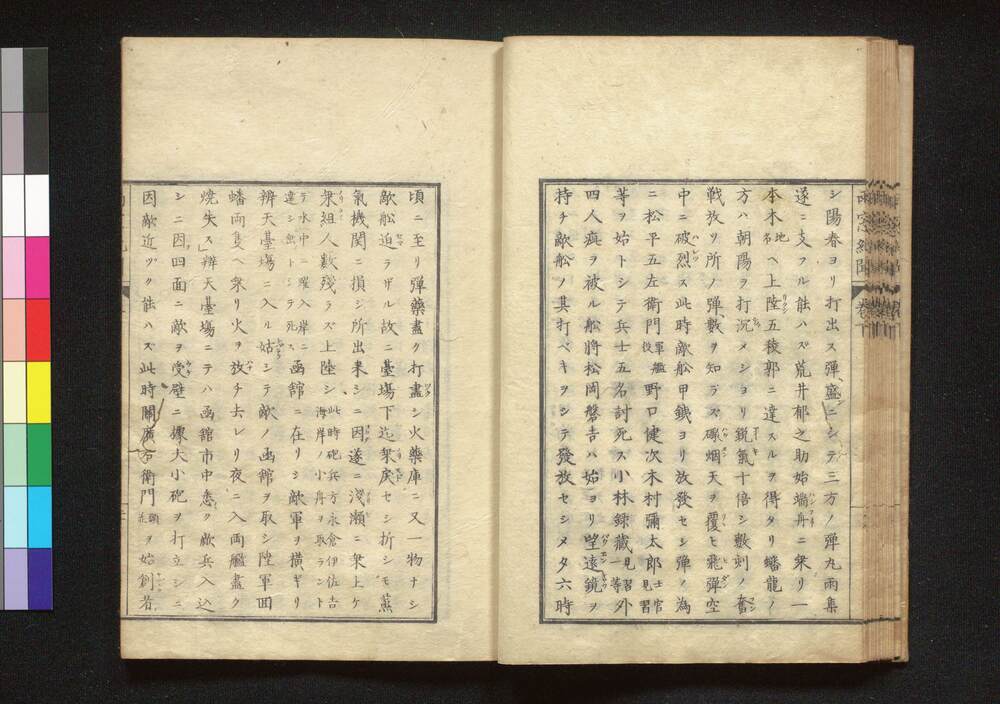 シ陽春ヨリ打出ス彈盛ニシテ三方ノ彈丸雨集
遂ニ支フル能ハズ荒井郁之助始端舟ニ乘リ一
本木地名ヘ上陸五稜郭ニ達スルヲ得タリ蟠龍ノ
方ハ朝陽ヲ打沉メシヨリ鋭氣十倍シ數刻ノ奮
戰放ツ所ノ彈數ヲ知ラズ硝烟天ヲ覆ヒ飛彈空
中ニ破烈ス此時敵舩甲鐵ヨリ放發セシ彈ノ為
ニ松平五左衛門軍艦役野口健次木村彌太郎士官見習
等ヲ始トシテ兵士五名討死ス小林録藏見習一等外
四人疵ヲ被ル舩將松岡磐吉ハ始ヨリ望遠鏡ヲ
持チ敵舩ノ其打ベキヲシテ發放セシメタ六時
頃ニ至リ彈藥盡ク打盡シ火藥庫ニ又一物ナシ
敵舩迫ラザル故ニ臺場下迄乘戻セシ折シモ蒸
氣機關ニ損シ所出來シニ因遂ニ淺瀬ニ乘上ケ
乘組人數殘ラズ上陸シ此時砲兵方永倉伊佐吉海岸ノ小舟ヲ取ラント
テ水中ニ躍入岸ニ達シ出ントシテ死ス函館ニ在リシ敵軍ヲ横ギリ
辨天臺場ニ入ル姑シテ敵ノ函館ヲ取シ陸軍回
蟠兩隻ヘ乘リ火ヲ放チ去レリ夜ニ入両艦盡ク
燒失ス辨天臺場ニテハ函館市中悉ク敵兵入込
シニ因四面ニ敵ヲ受壁ニ據大小砲ヲ打立シニ
因敵近ヅク能ハズ此時關廣右衛門ヲ始創者